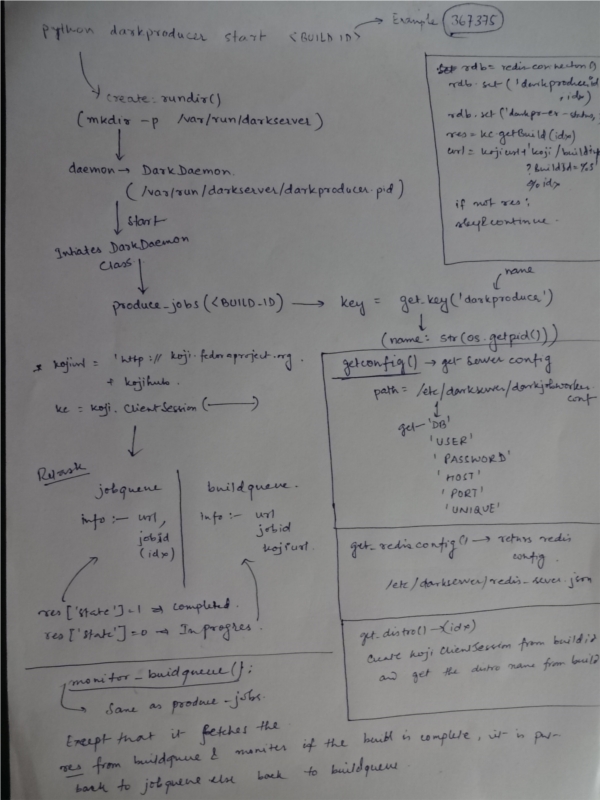 python darkproducer start <BUILD ID> → Example 367375
create-rundir()
(mkdir -p /var/run/darkserver)
daemon → DarkDaemon
(/var/run/darkserver/darkproducer.pid)
start
Intiates DarkDaemon
Class
produce_jobs(<BUILD-ID) → key = get_key('darkproducer')
name
(name: str(os.getpid()))
rdb = redis-connection()
rdb.set('darkproducerid
, idx)
rdb.set('darkpr-er-status,
res = kc.getBuild(idx)
url = kojiurl + 'koji/buildinfo
?buildId=%s'
% idx
if not res:
rkey & continue
kojiurl = 'http:// koji.fedoraproject.org.
+ kojihub.
kc = koji.ClientSession( )
Retask
jobqueue
info :- url,
jobid
(idx)
buildqueue.
info :- url
jobid
kojiurl.
res['state']=1 ⇒ completed.
res['state']=0 → In progres.
getconfig() → get server config
path = /etc/darkserver/darkjobworker.
conf
get - 'DB'
'USER'
'PASSWORD'
'HOST'
'PORT'
'UNIQUE'
get_redis config() → return redis
config.
/etc/darkserver/redis_sever.json
get_distro() → (idx)
Create Koji ClientSession from buildid
and get the distro name from build
monitor_buidqueue():
Same as produce-jobs.
Except that it fetches the
res from buildqueue & moniter if the build is complete, it is pus-
back to jobqueue else back to buildqueue.